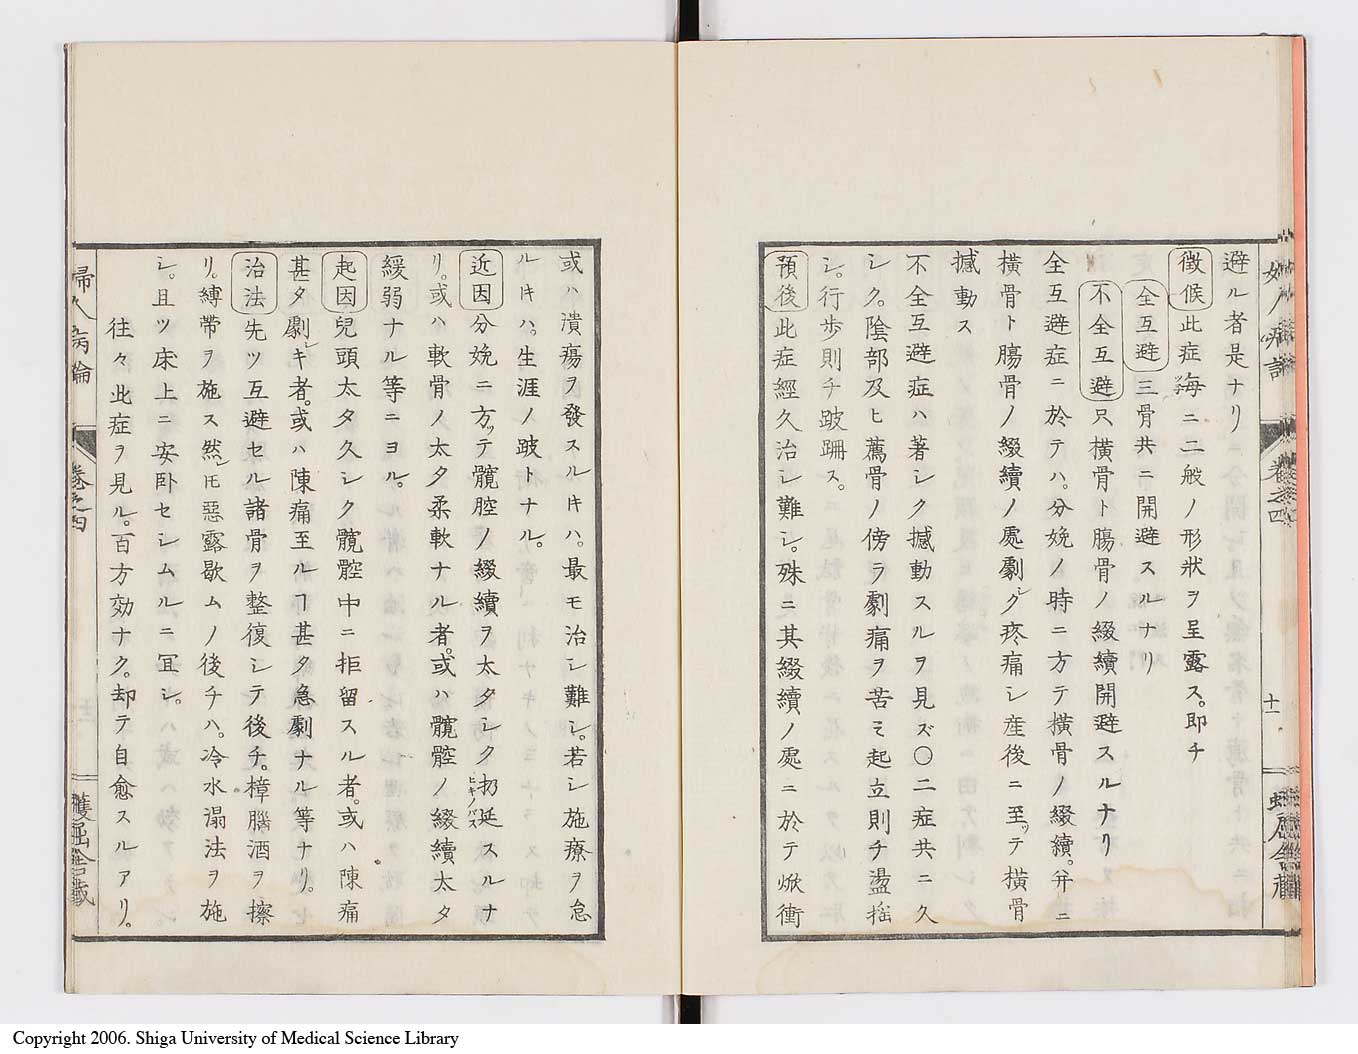 避ル者是ナリ
徴候此症毎ニ二般ノ形狀ヲ呈露ス。即チ
全互避三骨共ニ開避スルナリ
不全互避只横骨ト腸骨ノ綴續開避スルナリ
全互避症ニ於テハ。分娩ノ時ニ方テ横骨ノ綴續。并ニ
横骨ト腸骨ノ綴續ノ處劇シク疼痛シ産後ニ至ッテ横骨
撼動ス
不全互避症ハ著シク撼動スルヲ見ズ〇二症共ニ久
シク。陰部及ヒ薦骨ノ傍ラ劇痛ヲ苦ミ起立則チ盪揺
シ。行歩則チ跛跚ス。
預後此症經久治シ難シ。殊ニ其綴續ノ處ニ於テ焮衝
十一
或ハ潰瘍ヲ發スルキハ。最モ治シ難シ。若シ施療ヲ怠
ルキハ。生涯ノ跛トナル。
近因分娩ニ方ッテ髖腔ノ綴續ヲ太タシク扨延スルナ
ヒキノバス
リ。或ハ軟骨ノ太タ柔軟ナル者。或ハ髖腔ノ綴續太タ
緩弱ナル等ニヨル。
起因兒頭太タ久シク髖腔中ニ拒留スル者。或ハ陳痛
甚タ劇シキ者。或ハ陳痛至ルヿ甚タ急劇ナル等ナリ。
治法先ツ互避セル諸骨ヲ整復シテ後チ。樟腦酒ヲ擦
リ。縛帶ヲ施ス然レ𪜈惡露歇ムノ後チハ。冷水溻法ヲ施
シ。且ツ床上ニ安卧セシムルニ冝シ。
往々此症ヲ見ル。百方効ナク。却テ自愈スルアリ。
婦人病論 卷之四 蠖屈舍藏